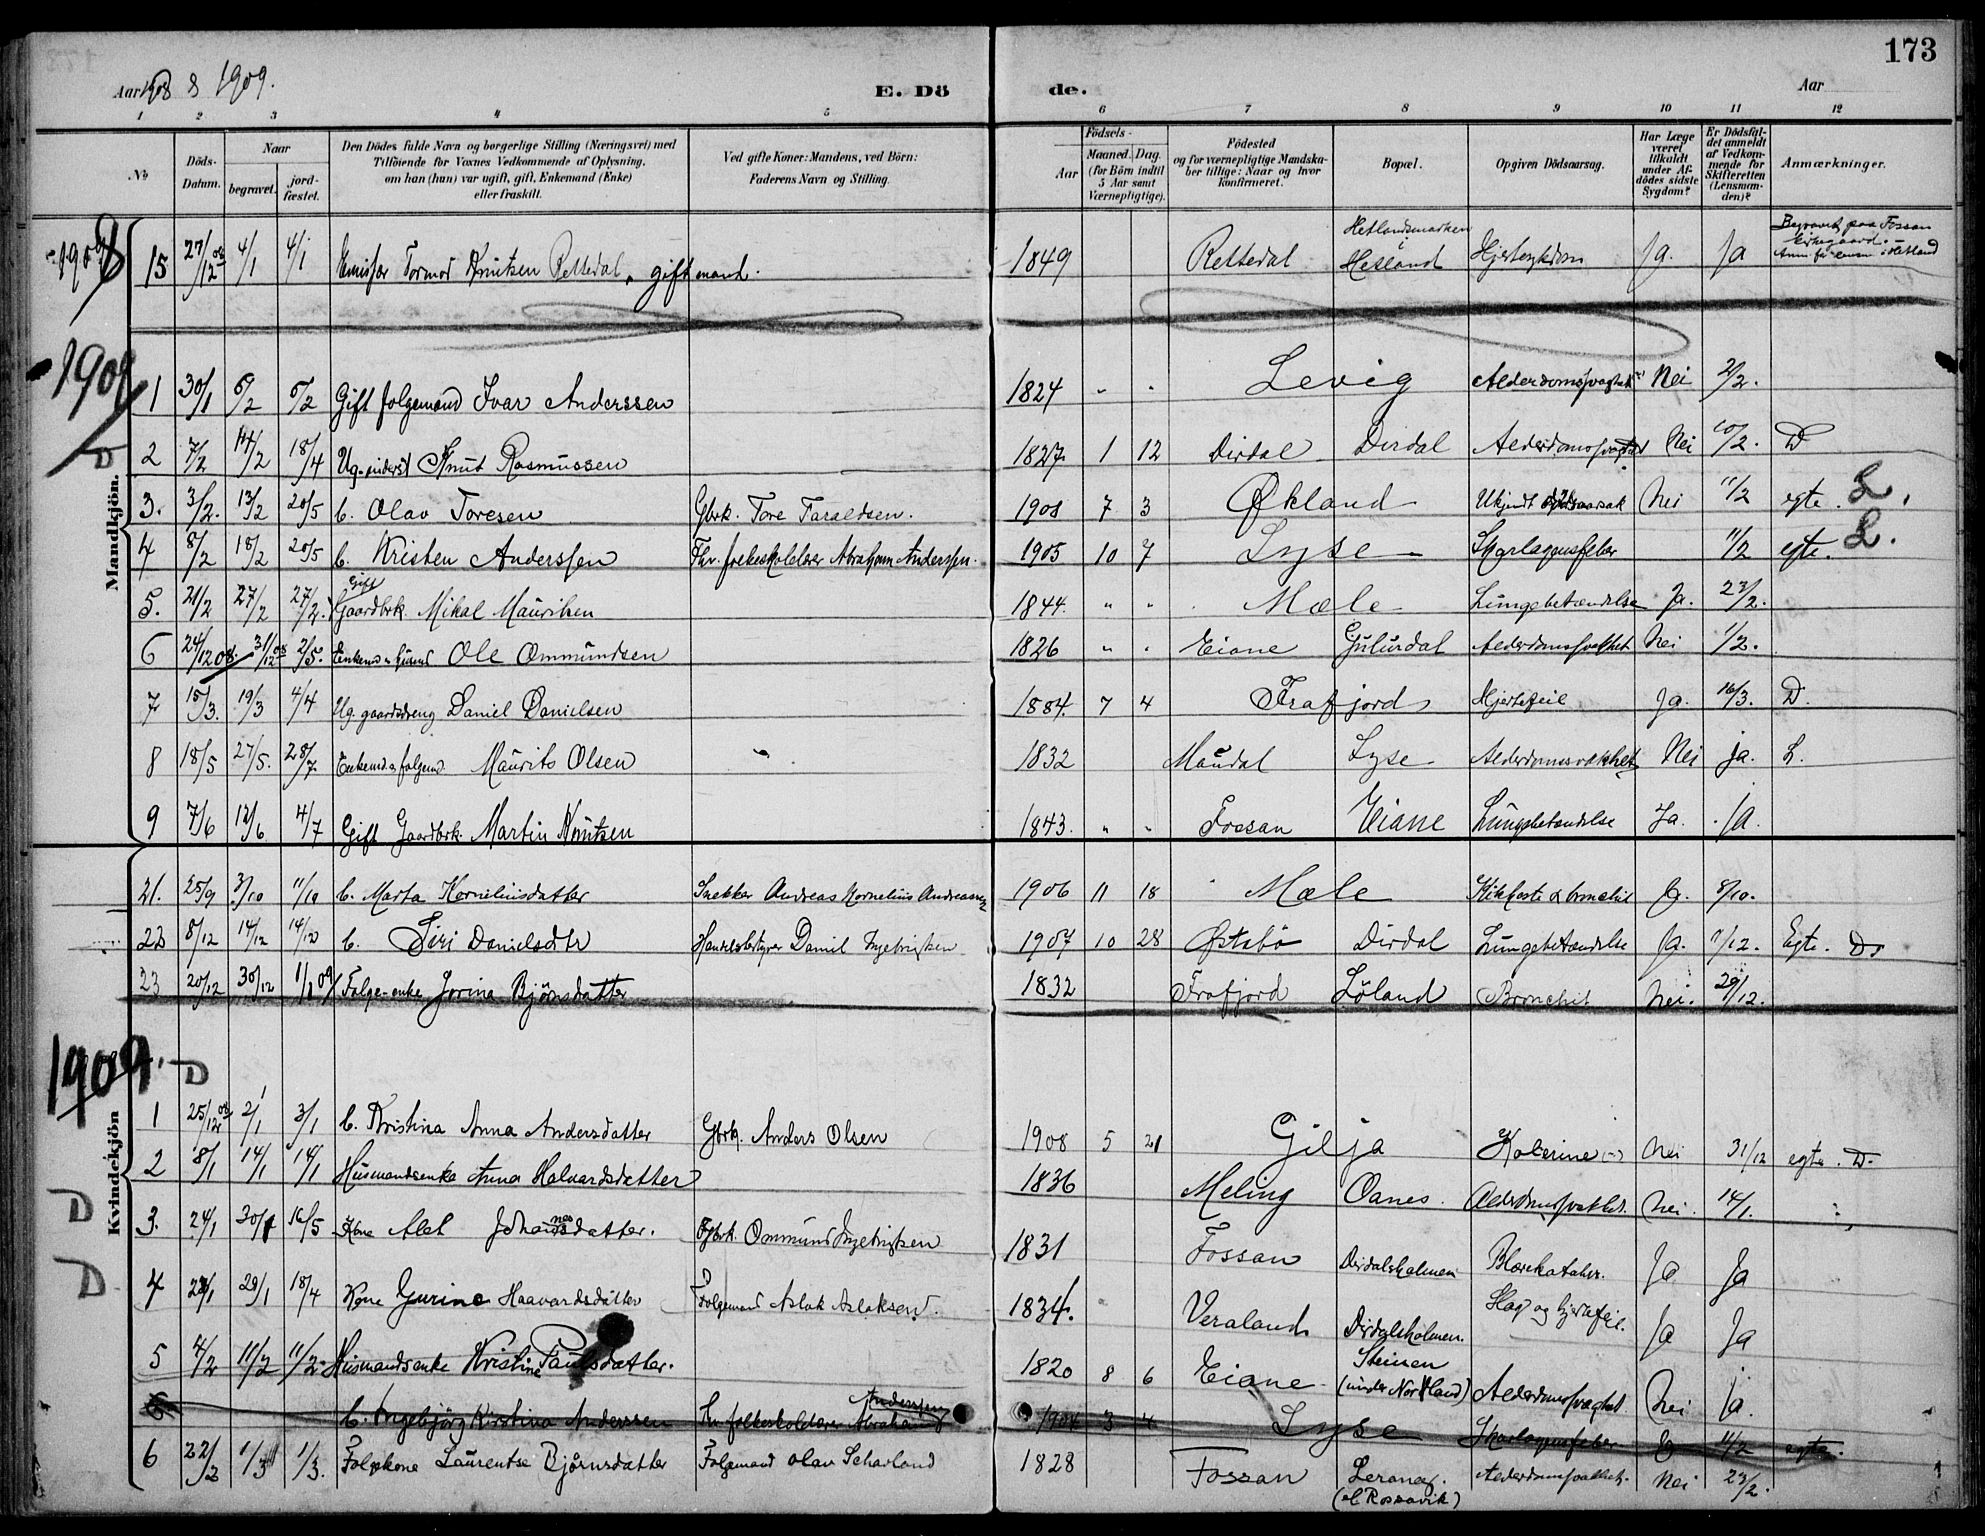 173
Aar 1908 & 1909.
E. Döde.
Aar
1 2 3 4 5 6 7 8 9 10 11 12
No.
Döds-Datum.
Naar
begravet.
jord-fæstet.
Den Dödes fulde Navn og borgerlige Stilling (Næringsvei) med
Tilföiende for Voxnes Vedkommende af Oplysning,
om han (hun) var ugift, gift, Enkemand (Enke)
eller fraskilt.
Ved gifte Koner: Mandens, ved Börn:
Faderens Navn og Stilling.
Födsels-
Aar
Maaned. Dag.
(for Börn indtil
5 Aar samt
Værnepligtige).
Födested
og for værnepligtige Mandska-
ber tillige: Naar og hvor
konfirmeret.
Bopæl.
Opgiven Dödsaarsag.
Har Læge
været
tilkaldt
under Af-
dödes sidste
Sygdom?
Er Dödsfal-
det anmeldt
af Vedkom-
mende for
Skifteretten
(Lensman-
den)?
Anmærkninger.
1908
15 27/12 08 4/1 4/1 Tormod Knutsen Rettedal, gift mand. 1849 Rettedal Hetlandsmarken i Hetland Hjertesygdom Ja. Ja Begravet paa Fossan Kirkegaard.
1909
Mandkjön.
1 30/1 6/2 6/2 Gift folgemand Ivar Anderssen 1824 " " Levig Alderdomssvaghet Nei 2/2.
D
2 7/2 14/2 18/4 Ug. Knut Rasmussen 1827 1 12 Dirdal Dirdal Alderdomssvaghed Nei 10/2. D
3. 3/2. 13/2 20/5 b. Olav Toresen Gbrk. Tore Taraldsen. 1908 7 3 Økland Ukjendt dødsaarsak Nei 11/2 egte. L.
4 8/2 18/2 20/5 b. Kristen Anderssen Fhv. folkeskolelærer Abraham Anderssen. 1905 10 7 Lyse Skarlagensfeber 11/2 egte. L.
5. 21/2 27/2 27/2. Gift Gaardbrk. Mikal Mauritsen 1844. " " Mæle Lungebetændelse Ja. 23/2.
6 24/12 08. 31/12 08 2/5. Enkemd. Ole Ommundsen 1826 " " Eiane Gulurdal Alderdomssvakhet Nei 1/2.
7 15/3. 19/3 4/4 Ug. gaardsdreng Daniel Danielsen 1884. 7 4 Frafjord Hjertefeil Ja. 16/3. D.
8 18/5 27/5. 28/7. Enkemd. & folgemd. Maurits Olsen 1832 Maudal Lyse Alderdomssvakhet Nei ja. L.
9 7/6 12/6. 4/7 Gift Gaardbrk. Martin Knutsen 1843. " " Fossan Eiane Lungebetændelse Ja. ja.
21. 25/9 3/10 11/10 b. Marta Korneliusdatter Snekker Andreas Kornelius Andreassen 1906 11 18 Mæle Kikhoste & bronchit Ja. 8/10.
22 8/12 14/12 14/12 b. Siri Danielsdtr Handelsbestyrer Daniel Ingebrigtsen 1907 10 28 Østabø Dirdal Lungebetændelse Ja. 11/12. Egte. D.
23 20/12 30/12 1/1 09 Folge-enke Jorina Bjørnsdatter 1832 Frafjord Løland Bronchit Nei. 29/12.
1909.
D
Kvindekjön
1 25/12 08 2/1 3/1 b. Kristina Anna Andersdatter Gbrk. Anders Olsen 1908 5 21 Gilja Kolerine (-) Nei 31/12 egte. D.
2 8/1 14/1 14/1 Husmandsenke Anna Halvardsdatter 1836 Meling Oanes. Alderdomssvakhet. Nei. 14/1.
D
3. 24/1 30/1 16/5 Kone Alet Johannesdatter. Gbrk. Ommund Ingebrigtsen 1831 Fossan Dirdalsholmen Blærekatahr. Ja Ja
D
4 23/1 29/1 18/4 Kone Gurine Haavardsdatter Folgemand Aslak Aslaksen. 1834. Veraland Dirdalsholmen. Slag og hjertefeil. Ja Ja
5 4/2 11/2 11/2. Husmandsenke Kristine Paulsdatter. 1820 8 6 Eiane Steinen (under Norland) Alderdomssvaghet Nei ja.
6 b. Ingebjörg Kirstina Anderssen folkeskolelærer Abraham Anderssen 1904 3 4 Lyse Skarlagensfeber 11/2 egte.
6 22/2 1/3 1/3. Folgekone Laurentse Bjørnsdatter Folgemand Olav Scharland 1828 Fossan Leranes. (el Rossavik) Alderdomssvakhet. Nei 23/2.